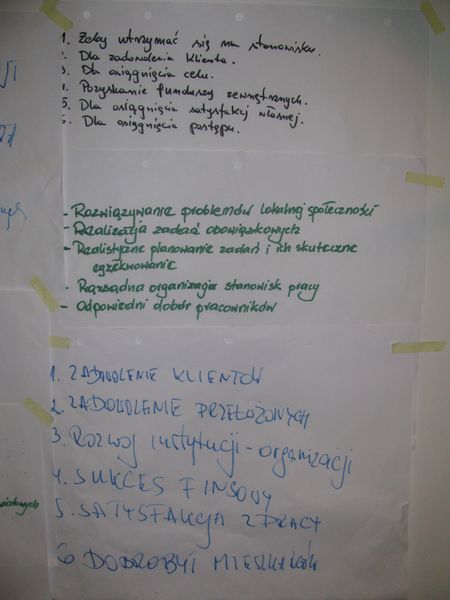 1. Żeby utrzymać się na stanowisku.
2. Dla zadowolenia klienta.
3. Dla osiągnięcia celu.
4. Pozyskanie funduszy zewnętrznych.
5. Dla osiągnięcia satysfakcj własnej.
6. Dla osiągnięcia postępu.
- Rozwiązywanie problemów lokalnej społeczności
- Realizacja zadań obowiązkowych
- Realistyczne planowanie zadań i ich skuteczne
egzekwowanie
- Rozsądna organizacja stanowisk pracy
- Odpowiedni dobór pracowników
1. ZADOWOLENIE KLIENTÓW
2. ZADOWOLENIE PRZEŁOŻONYCH
3. Rozwój instytucji - organizacji
4. SUKCES FINSOWY
5. SATYSFAKCJA Z PRACY
6. DOBROBYT MIESZKAŃCÓW